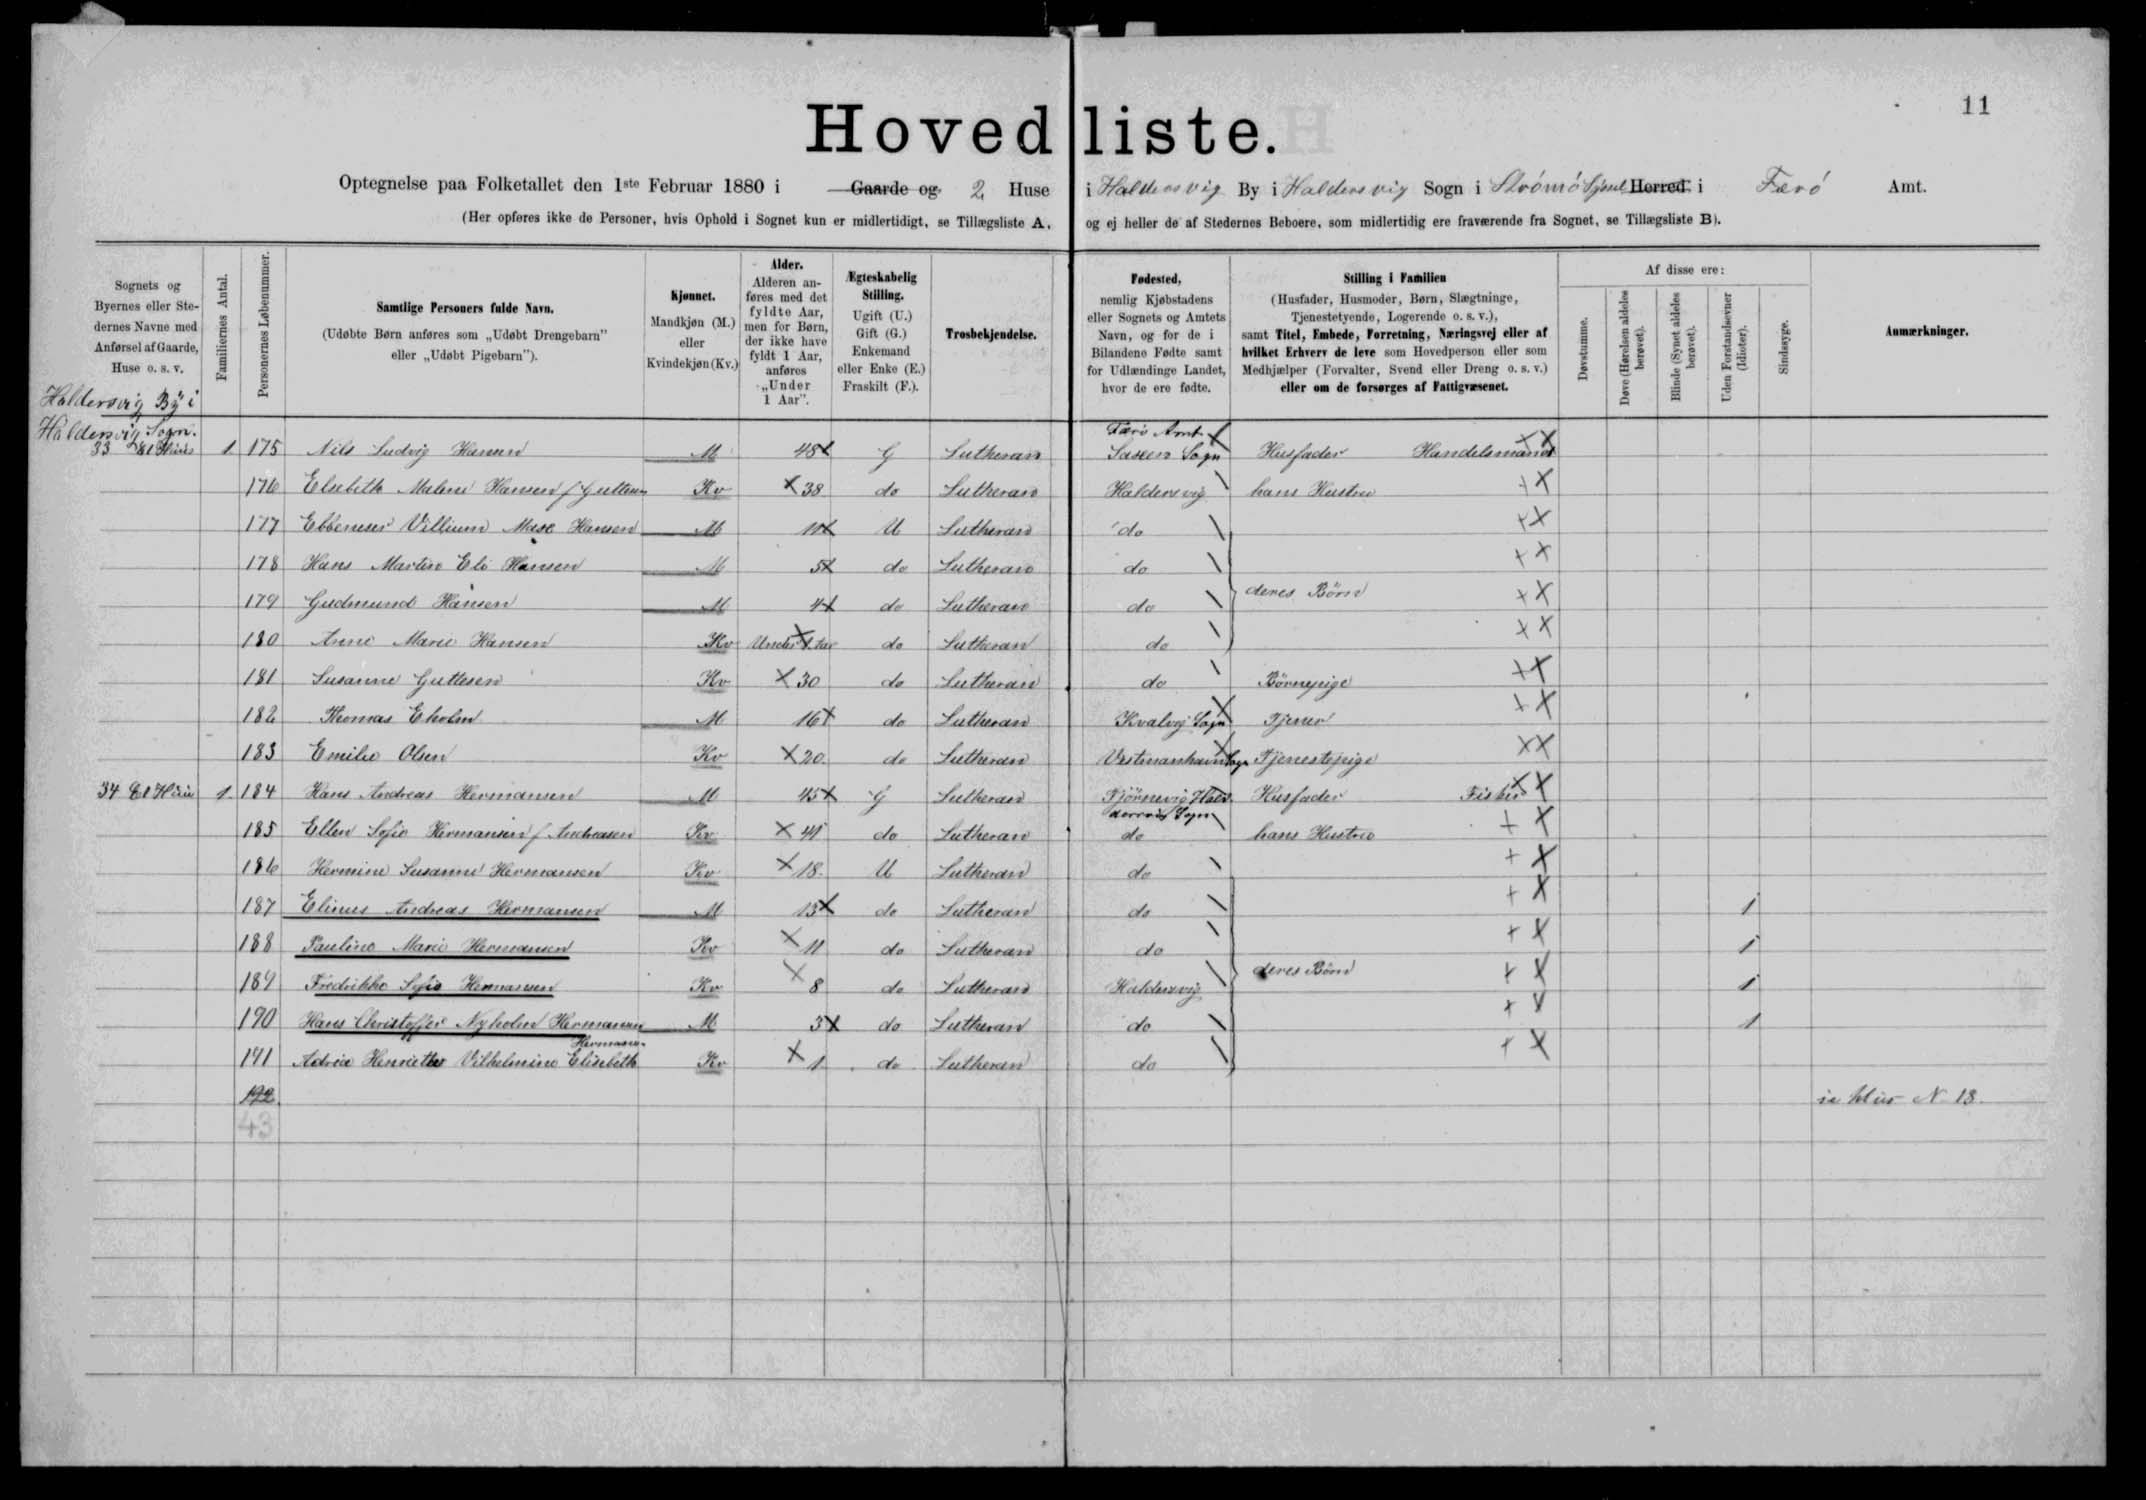 11
Hovedliste.
Optegnelse paa Folketallet den 1ste Februar 1880 i Gaarde og 2 Huse i Haldersvig By i Haldersvig Sogn i Strömö Syssel Herred i Færö Amt.
(Her opføres ikke de Personer, hvis Ophold i Sognet kun er midlertidigt, se Tillægsliste A, og ej heller de af Stedernes Beboere, som midlertidig ere fraværende fra Sognet, se Tillægsliste B).
Sognets og Byernes eller Stedernes Navne med Anførsel af Gaarde, Huse o. s. v.
Familiernes Antal.
Personernes Løbenummer.
Samtlige Personers fulde Navn.
(Udøbte Børn anføres som „Udøbt Drengebarn" eller „Udøbt Pigebarn").
Kjønnet.
Mandkjøn (M.) eller Kvindekjøn (Kv.)
Alder.
Alderen anføres med det fyldte Aar, men for Børn, der ikke have fyldt 1 Aar, anføres „Under 1 Aar".
Ægteskabelig Stilling.
Ugift (U.) Gift (G.) Enkemand eller Enke (E.) Fraskilt (F.).
Trosbekjendelse.
Fødested,
nemlig Kjøbstadens eller Sognets og Amtets Navn, og for de i Bilandene Fødte samt for Udlændinge Landet, hvor de ere fødte.
Stilling i Familien
(Husfader, Husmoder, Børn, Slægtninge, Tjenestetyende, Logerende o. s. v.),
samt Titel, Embede, Forretning, Næringsvej eller af hvilket Erhverv de leve som Hovedperson eller som Medhjælper (Forvalter, Svend eller Dreng o. s. v.) eller om de forsørges af Fattigvæsenet.
Af disse ere:
Døvstumme.
Døve (Hørelsen aldeles berøvet).
Blinde (Synet aldeles berøvet).
Uden Forstandsevner (Idioter).
Sindssyge.
Anmærkninger.
Haldersvig By i
Haldersvig Sogn.
33 Et Huus 1 175 Nils Ludvig Hansen M 48 G Lutheran Færö Amt Saxen Sogn Husfader Handelsmand
176 Elsebeth Malene Hansen f Guttesen Kv 38 do Lutheran Haldersvig hans Hustru
177 Ebbeneser Villium Maxe Hansen M 10 U Lutheran do
178 Hans Martin Eli Hansen M 5 do Lutheran do
179 Gudmund Hansen M 4 do Lutheran do deres Börn
180 Anne Marie Hansen Kv Under 1 Aar do Lutheran do
181 Susanne Guttesen Kv 30 do Lutheran do Börnepige
182 Thomas Eholm M 16 do Lutheran Kvalvig Sogn Tjener
183 Emilie Olsen Kv 20 do Lutheran Vestmanhavn Sogn Tjenestepige
34 Et Huus 1 184 Hans Andreas Hermansen M 45 G Lutheran Tjörnevig Haldersvig Sogn Husfader Fisker
185 Ellen Sofie Hermansen f Andreasen Kv 41 do Lutheran do hans Hustru
186 Hermine Susanne Hermansen Kv 18 U Lutheran do
187 Elinus Andreas Hermansen M 13 do Lutheran do 1
188 Pauline Marie Hermansen Kv 11 do Lutheran do 1
189 Fredrikke Sofie Hermansen Kv 8 do Lutheran Haldersvig deres Börn 1
190 Hans Christoffer Nyholm Hermansen M 3 do Lutheran do 1
191 Adria Henriette Vilhelmine Elisebeth Hermansen Kv 1 do Lutheran do
192 N 13.
43